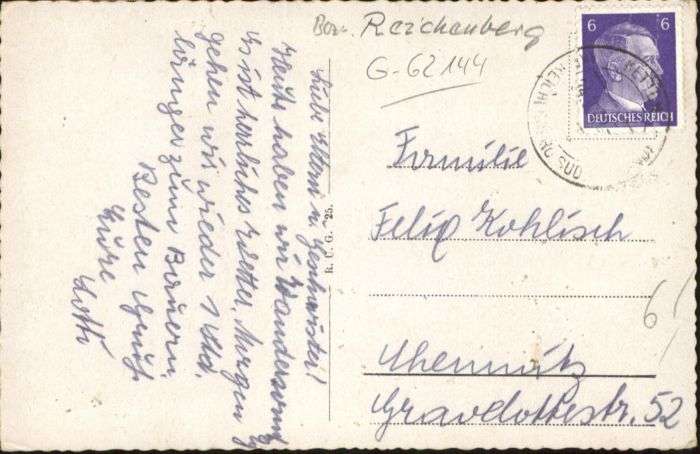 Bez. Reichenberg
G-62144
6 6
DEUTSCHES REICH
SÜD
Liebe Eltern u. Geschwister!
Heute haben wir Wandersonntag
Es ist herrliches Wetter. Morgen
gehen wir wieder 1 Std.
länger zum Bauern.
Besten Gruß
Eure
Lotti
R. U. G. 25.
Familie
Felix Kohlisch
Chemnitz
Gravelottestr. 52
6